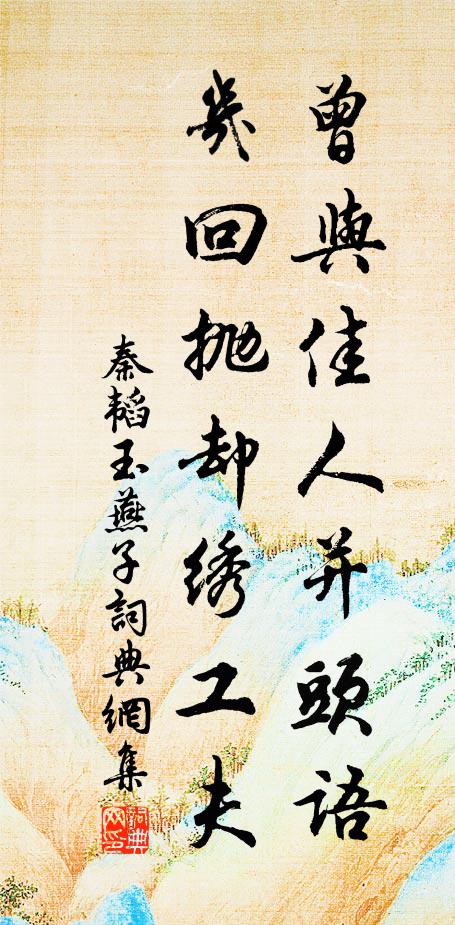 曾與佳人并頭語
幾回抛却绣工夫
秦韜玉燕子詞典網集
詞典网印